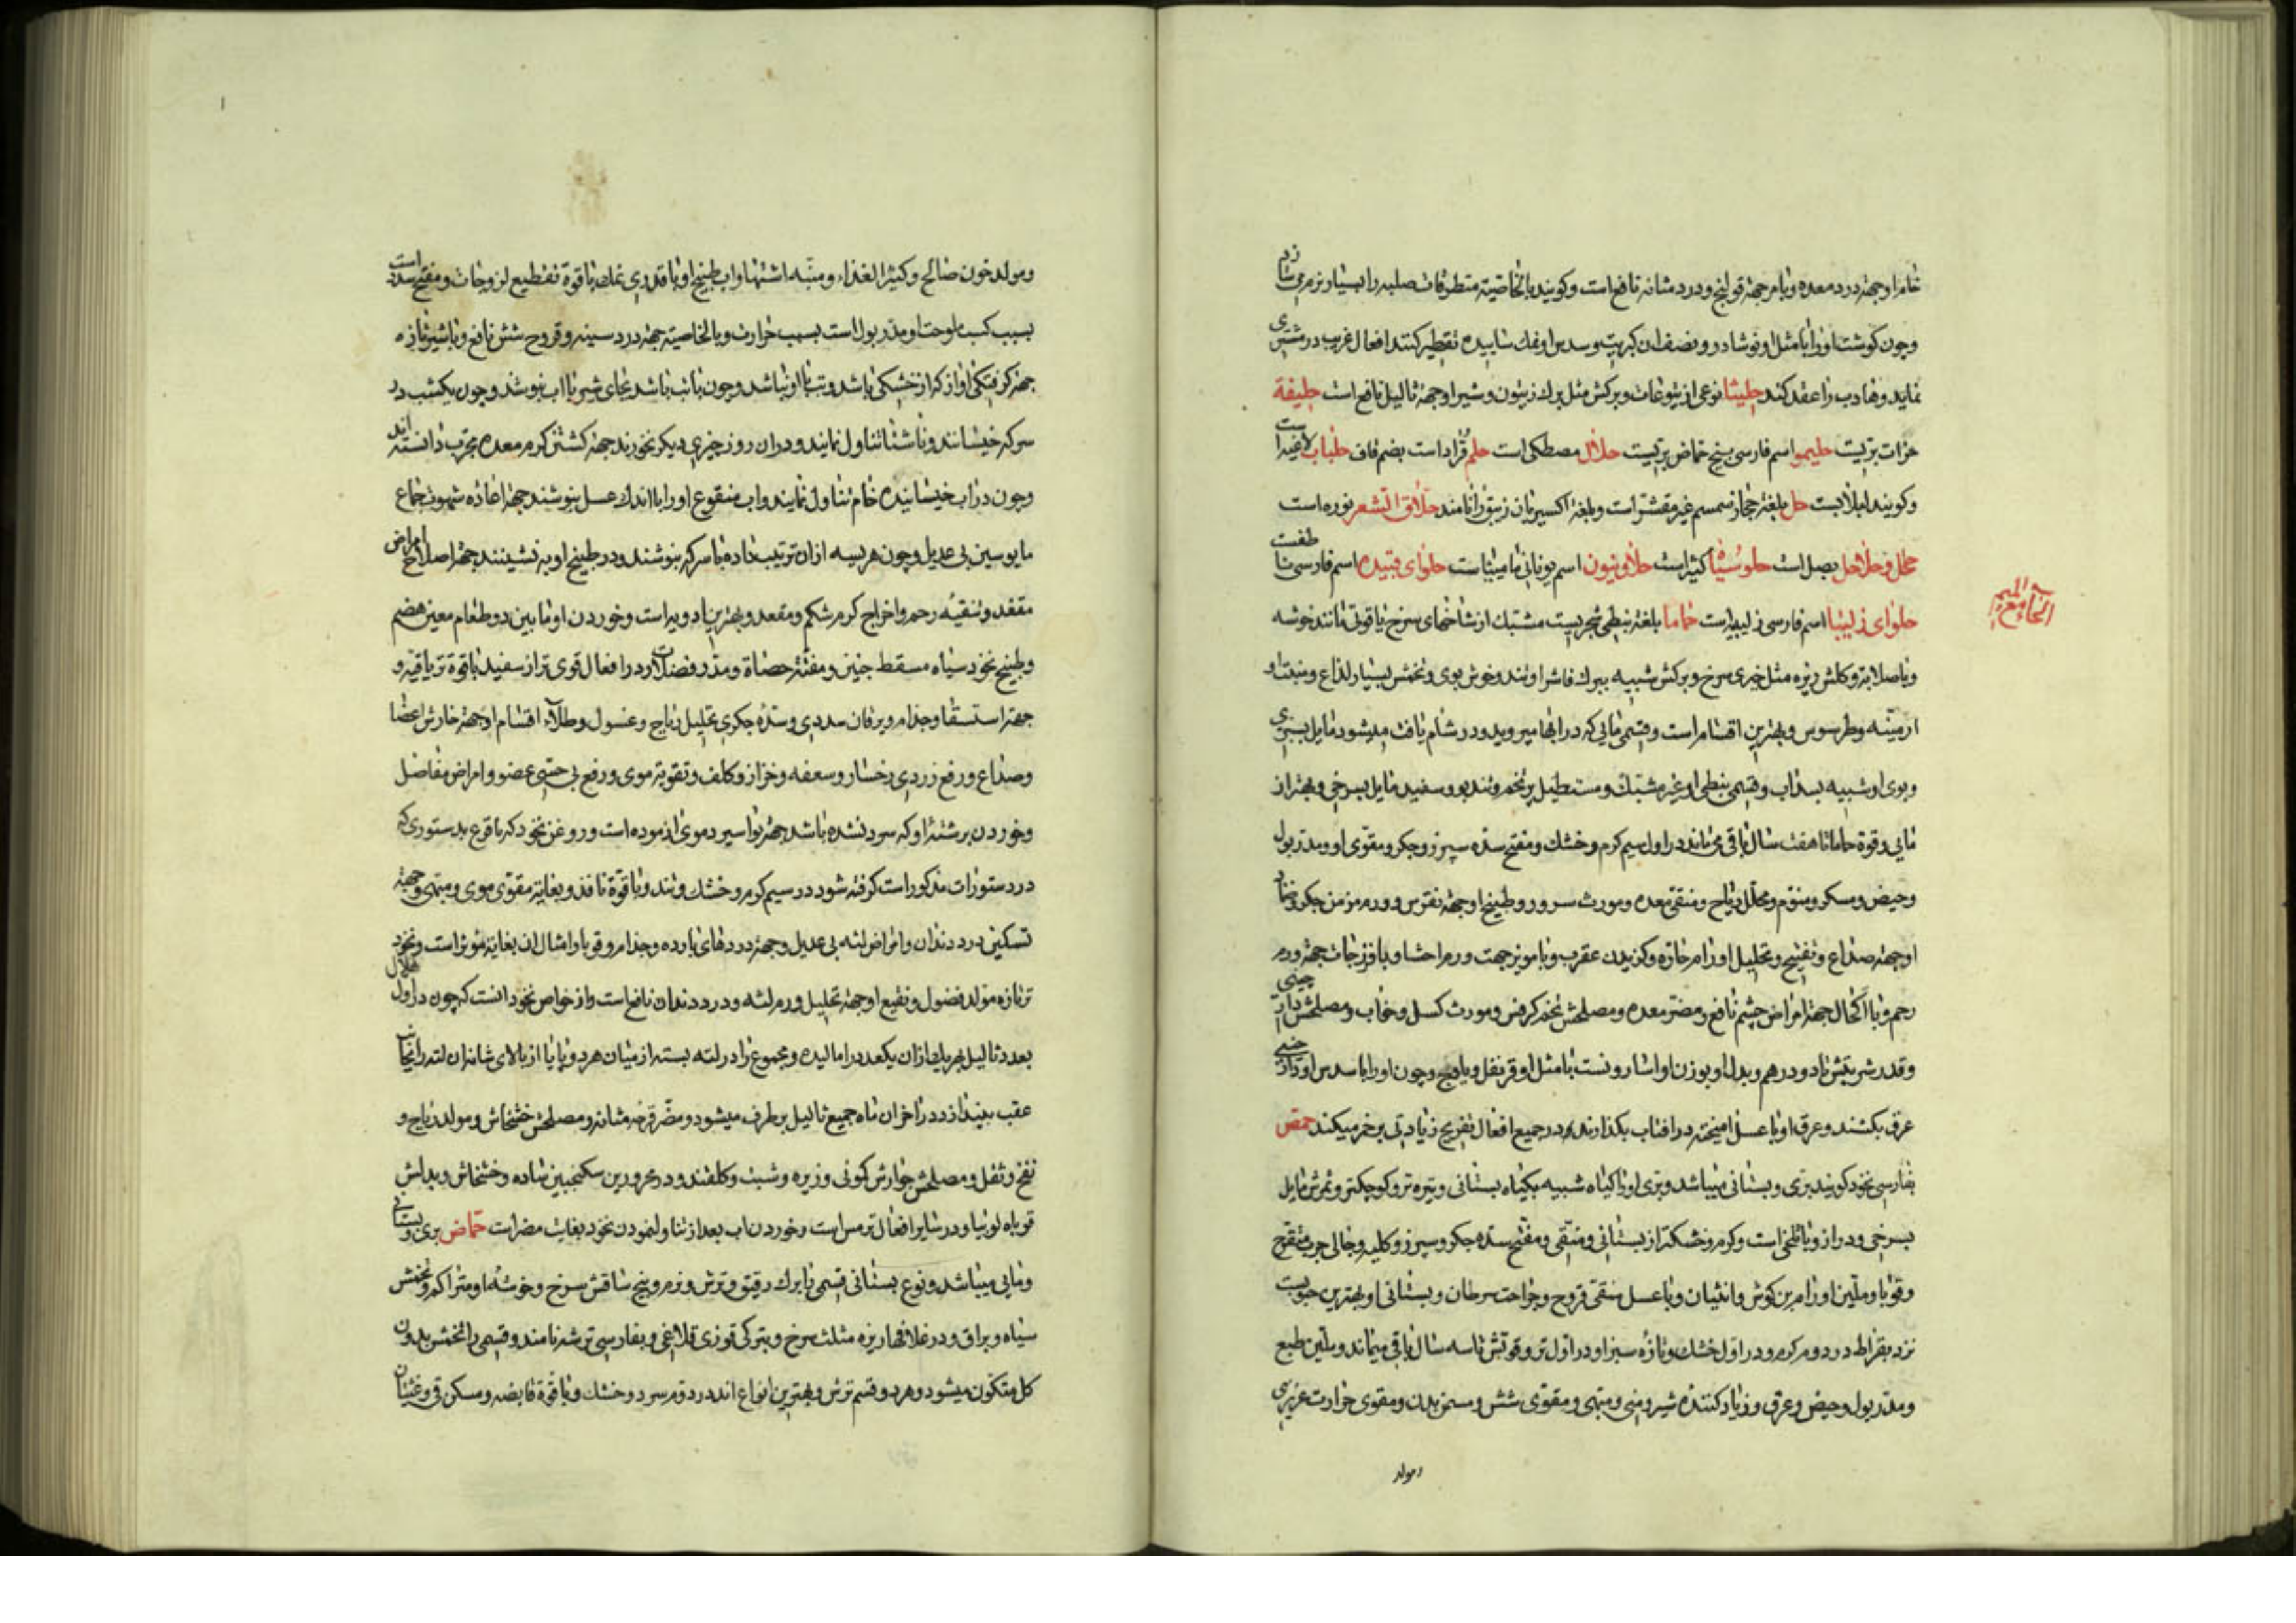 خام او جهة درد معده و با مر جهة قولنج و درد مثانه نافع است و کویند بالخاصیة متطرقات صلبه را بسیار نرم می سازد
و چون کوشت او را با مثل او نوشادر و نصف ان کبریت و سدس او نمک ساییده تقطیر کنند افعال غریب در مشتری
نماید و هارب را عقد کند حلیثا نوعی از یتوعات و برکش مثل برك زیتون و شیر او جهة ثالیل نافع است حلیفة
حزات بریست حلیمو اسم فارسی بیخ حماض بریست حلال مصطکی است حلم قراد است بضم قاف حلباب لاغیه است
و کویند لبلابست حل بلغة حجاز سمسم غیر مقشر است و بلغة اکسیریان زیبق را نامند حلاق الشعر نوره است
محلل و حلاحل بصل است حلوسیا کثیراست حلاونیون اسم یونانی مامیثا است حلوای قبیده اسم فارسی ناطفست
حلوای زلیبیا اسم فارسی زلیبیاست حماما بلغة نبطی شجریست مشتبك از شاخهای سرخ یاقوتی مانند خوشه
و باصلابة و کلش ریزه مثل خیری سرخ و برکش شبیه ببرك فاشرا و تند و خوش بوی و تخمش بسیار لذاع و منبت او
ارمینه و طرسوس و بهترین اقسام است و قسمی مایی که در ابها میروید و در شام یافت میشود مایل بسبزی
و بوی او شبیه بسداب و قسمی نبطی او غیر مشتبك و مستطیل پر تخم و تند بو و سفید مایل بسرخی و بهتر از
مایی و قوة حماما تا هفت سال باقی می ماند در اول سیم کرم و خشك و مفتح سده سپرز و جکر و مقوی او و مدر بول
و حیض و مسکر و منوم و محلل ریاح و منقی معده و مورث سرور و طبیخ او جهة نقرس و ورم مزمن جکر و ضماد
او جهة صداع و نضج و تحلیل اورام حاره و کزیدن عقرب و با مویز جهت ورم احشا و با فرزجات جهة ورم
رحم و با اکتحال جهة امراض چشم نافع و مضر معده و مصلحش تخم کرفس و مورث کسل و خواب و مصلحش دارچینی
و قدر شربتش تا دو درهم و بدل او بوزن او اسارونست با مثل او قرنفل و یا وج و چون او را با سدس او دارچینی
عرق بکشند و عرق او با عسل امیخته در افتاب بکذارند در جمیع افعال تفریح زیادتی بر خمر میکند حمص
بفارسی نخود کویند بری و بستانی میباشد و بری او را کیاه شبیه بکیاه بستانی و تیره تر و کوچکتر و ثمرش مایل
بسرخی و دراز و با تلخی است و کرم و خشکتر از بستانی و منقی و مفتح سده جکر و سپرز و کلیه و جالی جرب متقرح
و قوبا و ملین اورام بن کوش و انثیان و با عسل منقی قروح و جراحت سرطان و بستانی او بهترین حبوبست
نزد بقراط در دوم کرم و در اول خشك و تازه سبز او در اول تر و قوتش تا سه سال باقی میماند و ملین طبع
و مدر بول و حیض و عرق و زیاد کننده شیر و منی و مبهی و مقوی شش و مسمن بدن و مقوی حرارت غریزی
و مولد
الحاء مع المیم
و مولد خون صالح و کثیر الغذاء و منبه اشتها و اب طبیخ او با قدری نمك با قوة تقطیع لزوجات و مفتح سدد است
بسبب کسب ملوحت او مدر بول است بسبب حرارت و بالخاصیة جهة درد سینه و قروح شش نافع و با شیر تازه
جهة کرفتکی اواز که از خشکی باشد و تب با او نباشد و چون با تب باشد بجای شیر با اب بنوشند و چون یکشب در
سرکه خیسانند و ناشتا تناول نمایند و در ان روز چیزی دیکر نخورند جهة کشتن کرم معده مجرب دانسته اند
و چون در اب خیسانیده خام تناول نمایند و اب منقوع او را با اندك عسل بنوشند جهة اعاده شهوت جماع
مایوسین بی عدیل و چون هریسه از ان ترتیب داده با سرکه بنوشند و در طبیخ او بنشینند جهة اصلاح امراض
مقعد و تنقیه رحم و اخراج کرم شکم و مقعد و بهترین ادویه است و خوردن او مابین دو طعام معین هضم
و طبیخ نخود سیاه مسقط جنین و مفتت حصاة و مدر فضلات و در افعال قوی تر از سفید با قوة تریاقیه و
جهة استسقا و جذام و یرقان سددی و سده جکری تحلیل ریاح و غسول و طلاء اقسام او جهة خارش اعضا
و صداع و رفع زردی رخسار و سعفه و حزاز و کلف و تقویة موی و رفع بی حسی عضو و امراض مفاصل
و خوردن برشته او که سرد نشده باشد جهة بواسیر دموی ازموده است و روغن نخود که با قرع بدستوری که
در دستورات مذکور است کرفته شود در سیم کرم و خشك و تند و با قوة نافذ و بغایة مقوی موی و مبهی و جهة
تسکین درد دندان و امراض لثه بی عدیل و جهة دردهای بارده و جذام و قوبا و امثال ان بغایة مؤثر است و نخود
تر تازه مولد فضول و نقیع او جهة تحلیل ورم لثه و درد دندان نافع است و از خواص نخود انست که چون در اول هلال
بعدد ثالیل بهر یك از ان یکعدد را مالیده و مجموع را در لته بسته از میان هر دو پا یا از بالای شانه ان لته را بجانب
عقب بیندازد در اخر ان ماه جمیع ثالیل بر طرف میشود و مضر قرحه مثانه و مصلحش خشخاش و مولد ریاح و
نفخ و ثقل و مصلحش جوارش کمونی و زیره و شبت و کلقند و در محرورین سکنجبین ساده و خشخاش و بدلش
در باه لوبیا و در سایر افعال ترمس است و خوردن اب بعد از تناول نمودن نخود بغایت مضر است حماض بری و بستانی
و مایی میباشد و نوع بستانی قسمی با برك رقیق و ترش و نرم و بیخ ساقش سرخ و خوشه او متراکم و تخمش
سیاه و براق و در غلافها ریزه مثلث سرخ و بترکی قوزی قلاغی و بفارسی ترشه نامند و قسمی را تخمش بدون
کل متکون میشود و هر دو قسم ترش و بهترین انواع اند در دوم سرد و خشك و با قوة قابضه و مسکن قی و غثیان